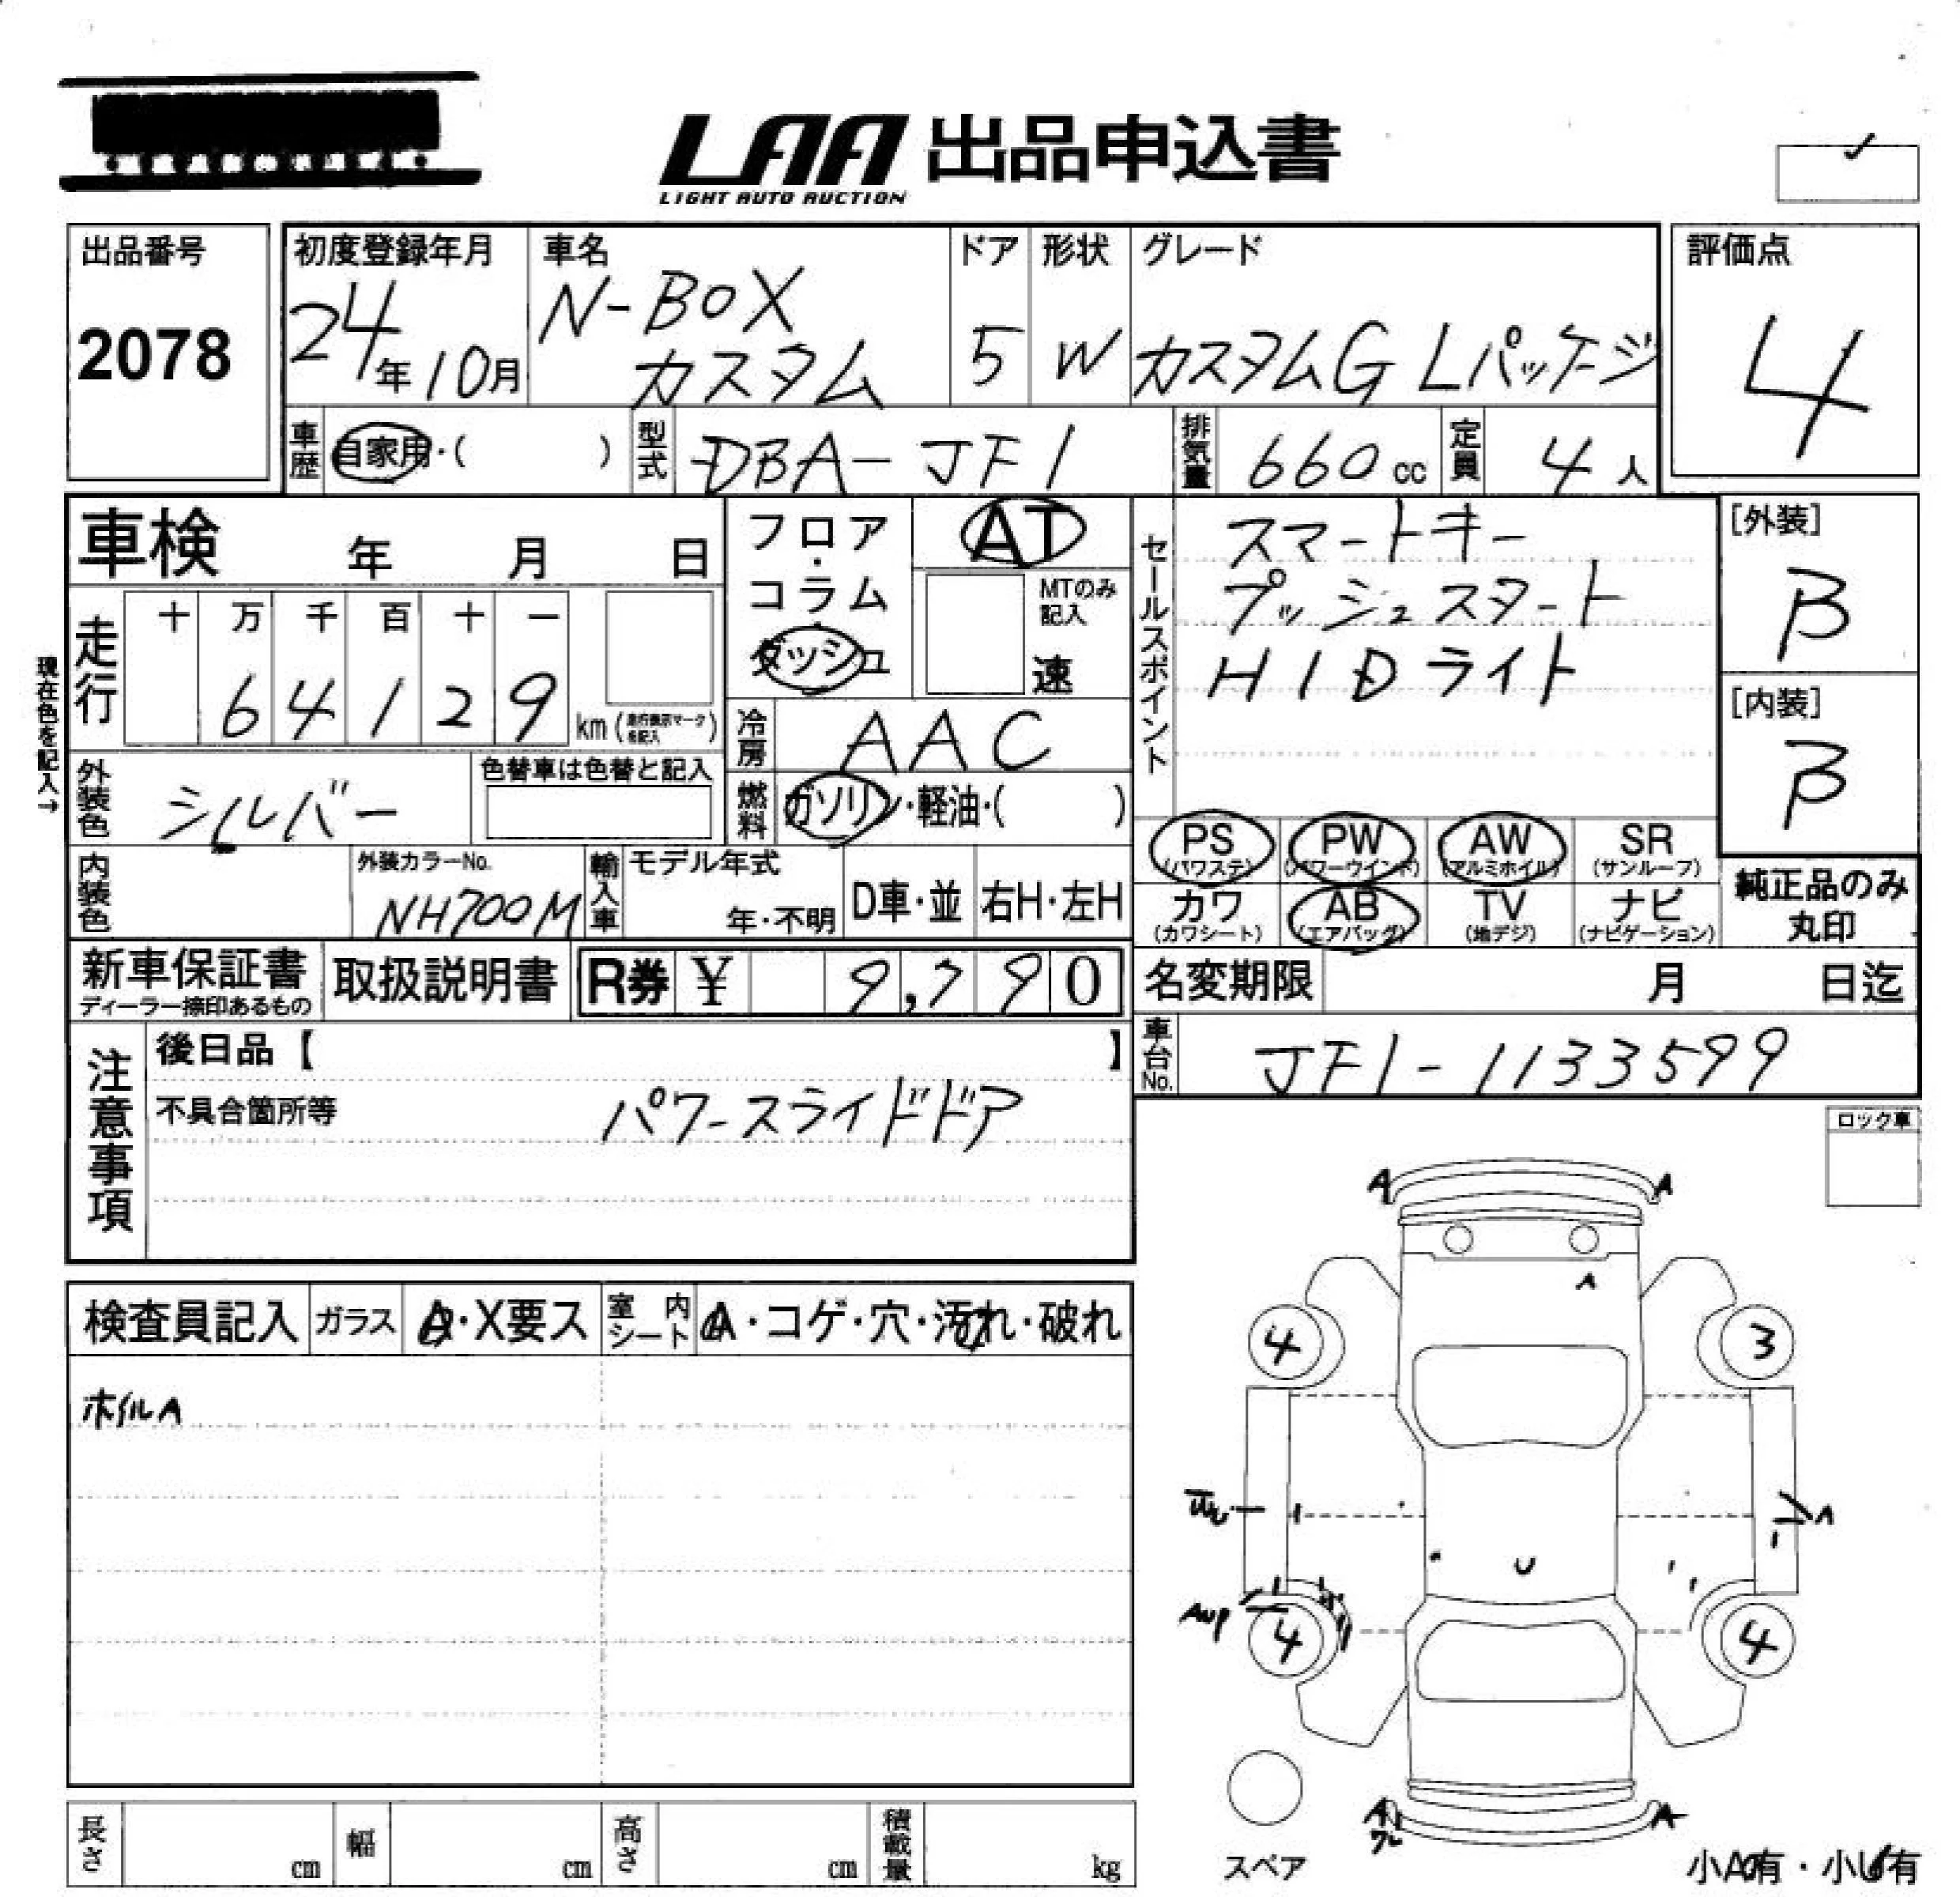 LAA 出品申込書
LIGHT AUTO AUCTION
出品番号
2078
初度登録年月
24年10月
車名
N-BOX
カスタム
ドア
5
形状
W
グレード
カスタムG Lパッケージ
評価点
4
車歴
自家用・( )
型式
DBA-JF1
排気量
660cc
定員
4人
車検 年 月 日
フロア・コラム
ダッシュ
AT
MTのみ記入
速
セールスポイント
スマートキー
プッシュスタート
HIDライト
[外装]
B
[内装]
B
現在色を記入→
走行
十 万 千 百 十 一
6 4 1 2 9 km
冷房
AAC
外装色
シルバー
色替車は色替と記入
燃料
ガソリン・軽油・( )
PS (パワステ)
PW (パワーウインド)
AW (アルミホイル)
SR (サンルーフ)
カワ (カワシート)
AB (エアバッグ)
TV (地デジ)
ナビ (ナビゲーション)
純正品のみ
丸印
内装色
外装カラーNo.
NH700M
輸入車
モデル年式
年・不明
D車・並
右H・左H
新車保証書
ディーラー捺印あるもの
取扱説明書
R券 ¥ 9,790
名変期限 月 日迄
車台No.
JF1-1133599
注意事項
後日品【 】
不具合箇所等
パワースライドドア
ロック車
検査員記入
ガラス
A・X要ス
室内シート
A・コゲ・穴・汚れ・破れ
ホイルA
A
A
A
4
3
A
U
4
4
A
A
スペア
小A有・小U有
長さ cm
幅 cm
高さ cm
積載量 kg